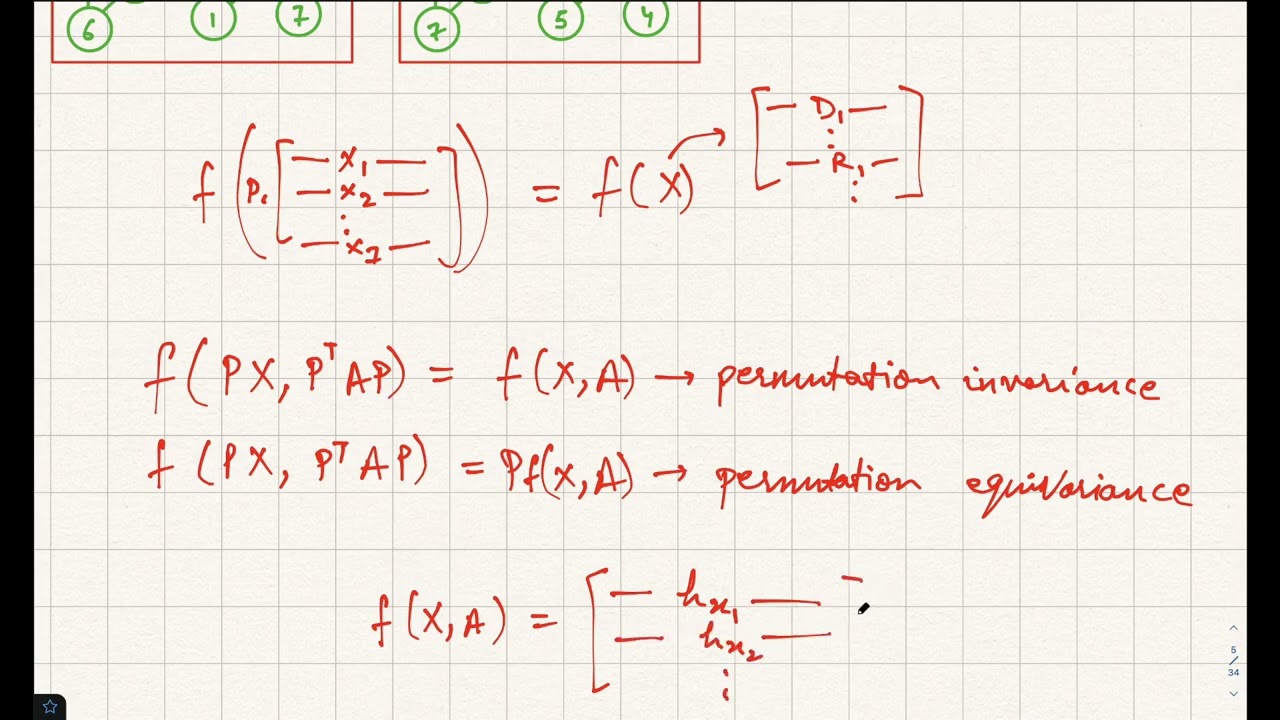 6 1 7 7 5 4
f(P₁[— x₁ — — x₂ — ⋮ — x₇ —]) = f(X) → [— D₁ — ⋮ — R₁ — ⋮]
f(PX, PᵀAP) = f(X, A) → permutation invariance
f(PX, PᵀAP) = Pf(X, A) → permutation equivariance
f(X, A) = [— hx₁ —
— hx₂ —
⋮
5
/
34